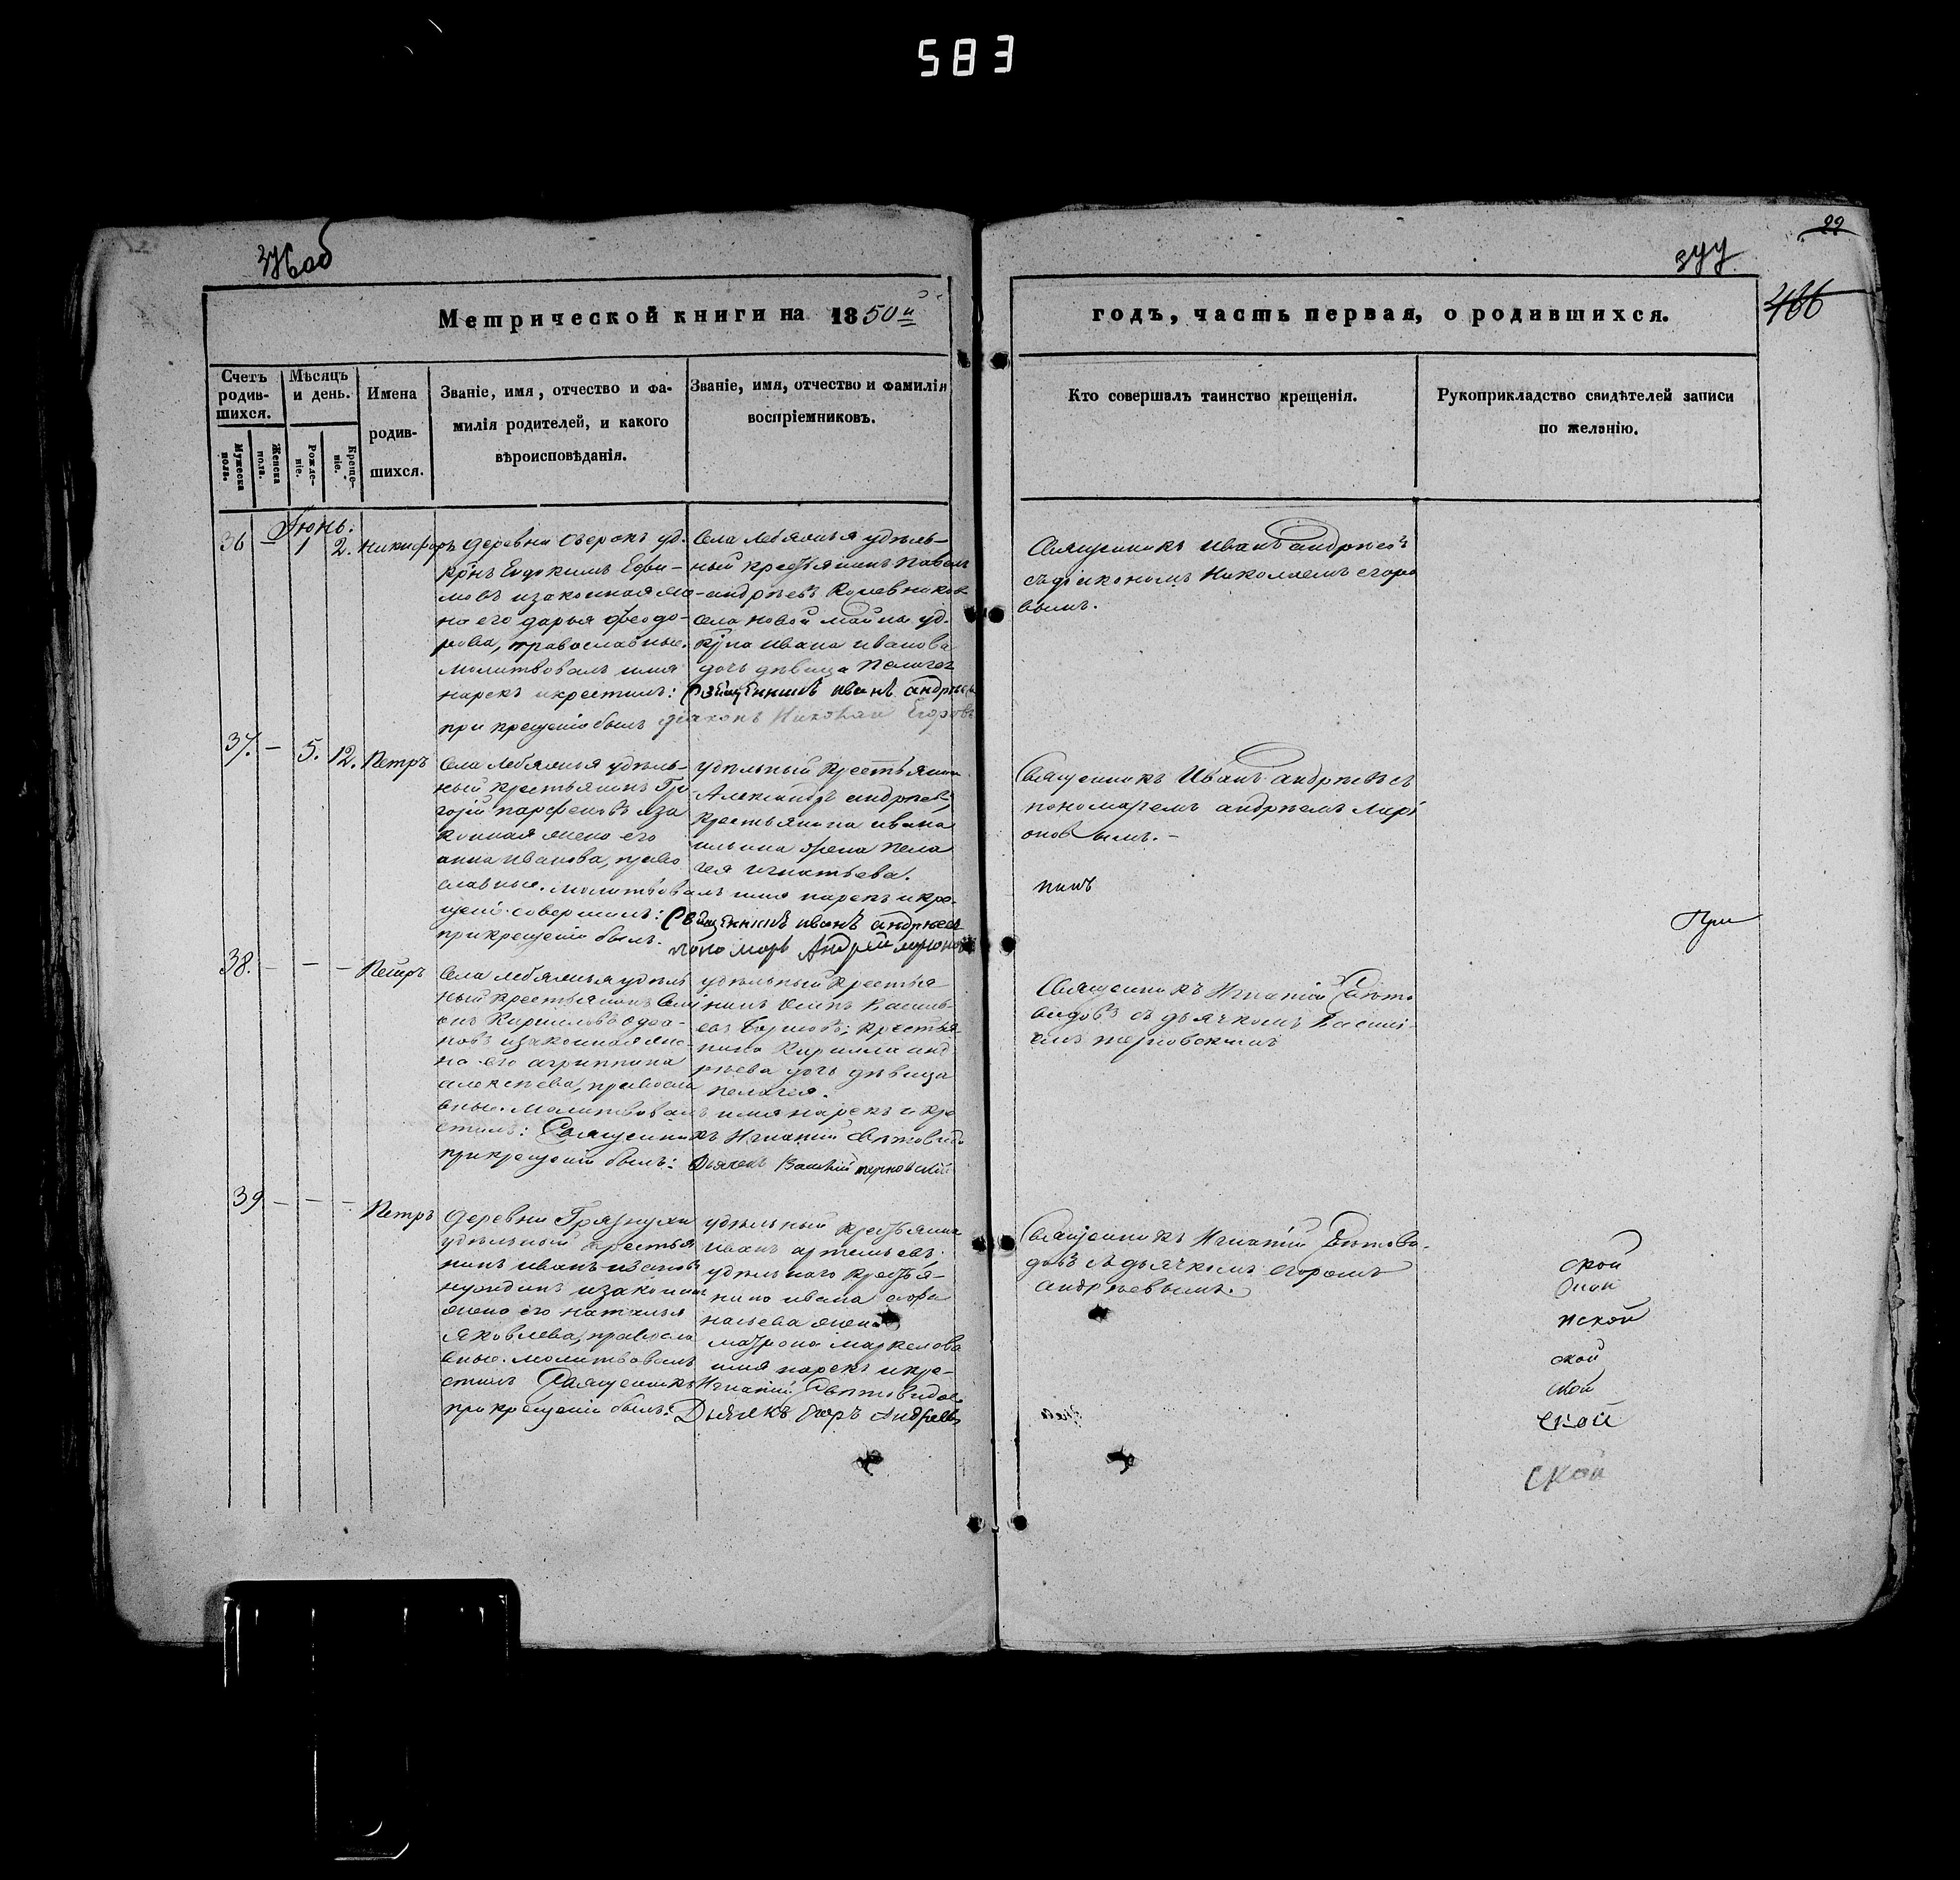 583
376об
377
22
466
Метрической книги на 1850й
годъ, часть первая, о родившихся.
Счетъ родив-
шихся.
Мужеска пола.
Женска пола.
Мѣсяцъ и день.
Рожде-
ніе.
Креще-
ніе.
Имена
родив-
шихся.
Званіе, имя, отчество и фа-
милія родителей, и какого
вѣроисповѣданія.
Званіе, имя, отчество и фамилія
воспріемниковъ.
Кто совершалъ таинство крещенія.
Рукоприкладство свидѣтелей записи
по желанію.
Іюнь.
36 – 1 2. Никифоръ
деревни Озерокъ уд.
крнъ Евдокимъ Ефи-
мовъ изаконная же-
на его дарья феодо-
рова, православные.
молитвовалъ имя
нарекъ икрестилъ: Священникъ иванъ андреев
при крещеніи былъ діаконъ Николай Егоровъ
Села Лебяжья удѣль-
ный крестьянинъ Павелъ
андреевъ
села новой майны уд.
крна ивана иванова
дочь дѣвица Пелагея
Священникъ Иванъ андреевъ
съдіакономъ Николаемъ егоро
вымъ.
37. – 5. 12. Петръ
Села Лебяжья удѣль-
ный крестьянинъ Гри
горій парфеновъ иза
конная жена его
анна Иванова, право
славные. молитвовалъ имя нарекъ икре-
щеніе совершилъ: Священникъ иванъ андреев
прикрещеніи былъ. пономарь Андрей
удѣльный крестьянин
Александръ андреевъ
крестьянина ивана
ильина жена Пела
гея игнатьева.
Священникъ Иванъ андреевъ съ
пономаремъ андреемъ Ларі
оновымъ.–
38. – – – Петръ
Села лебяжья удѣль
ный крестьянинъ Семі
онъ Кирилловъ
новъ изаконная же-
на его агриппина
алексѣева, правосла
вные. молитвовалъ имя нарекъ и кре
стилъ: Священникъ Игнатій
прикрещеніи былъ: Дьячекъ Василій терновскій
удѣльный крестья
нинъ Осипъ Василь-
евъ крестья-
нина Кирилла анд
реева дочь дѣвица
пелагея.
Священникъ Игнатій Свѣто
видовъ съ дьячкомъ Василі-
емъ терновскимъ
39 – – – Петръ
деревни Грязнухи
удѣльный крестья
нинъ иванъ ивановъ
изаконная
жена его наталья
Яковлева, правосла
вные. молитвовалъ имя нарекъ икре-
стилъ Священникъ Игнатій Свѣтовидов
прикрещеніи былъ: Дьячекъ Егоръ Андреевъ
удѣльный крестьянин
иванъ артемьевъ.
удѣльнаго крестья-
нина ивана афа
насьева жена
матрона маркелова
Священникъ Игнатій Свѣтови-
довъ съдьячкомъ егоромъ
андреевымъ.
При
ской
ской
ской
ской
ской
ской